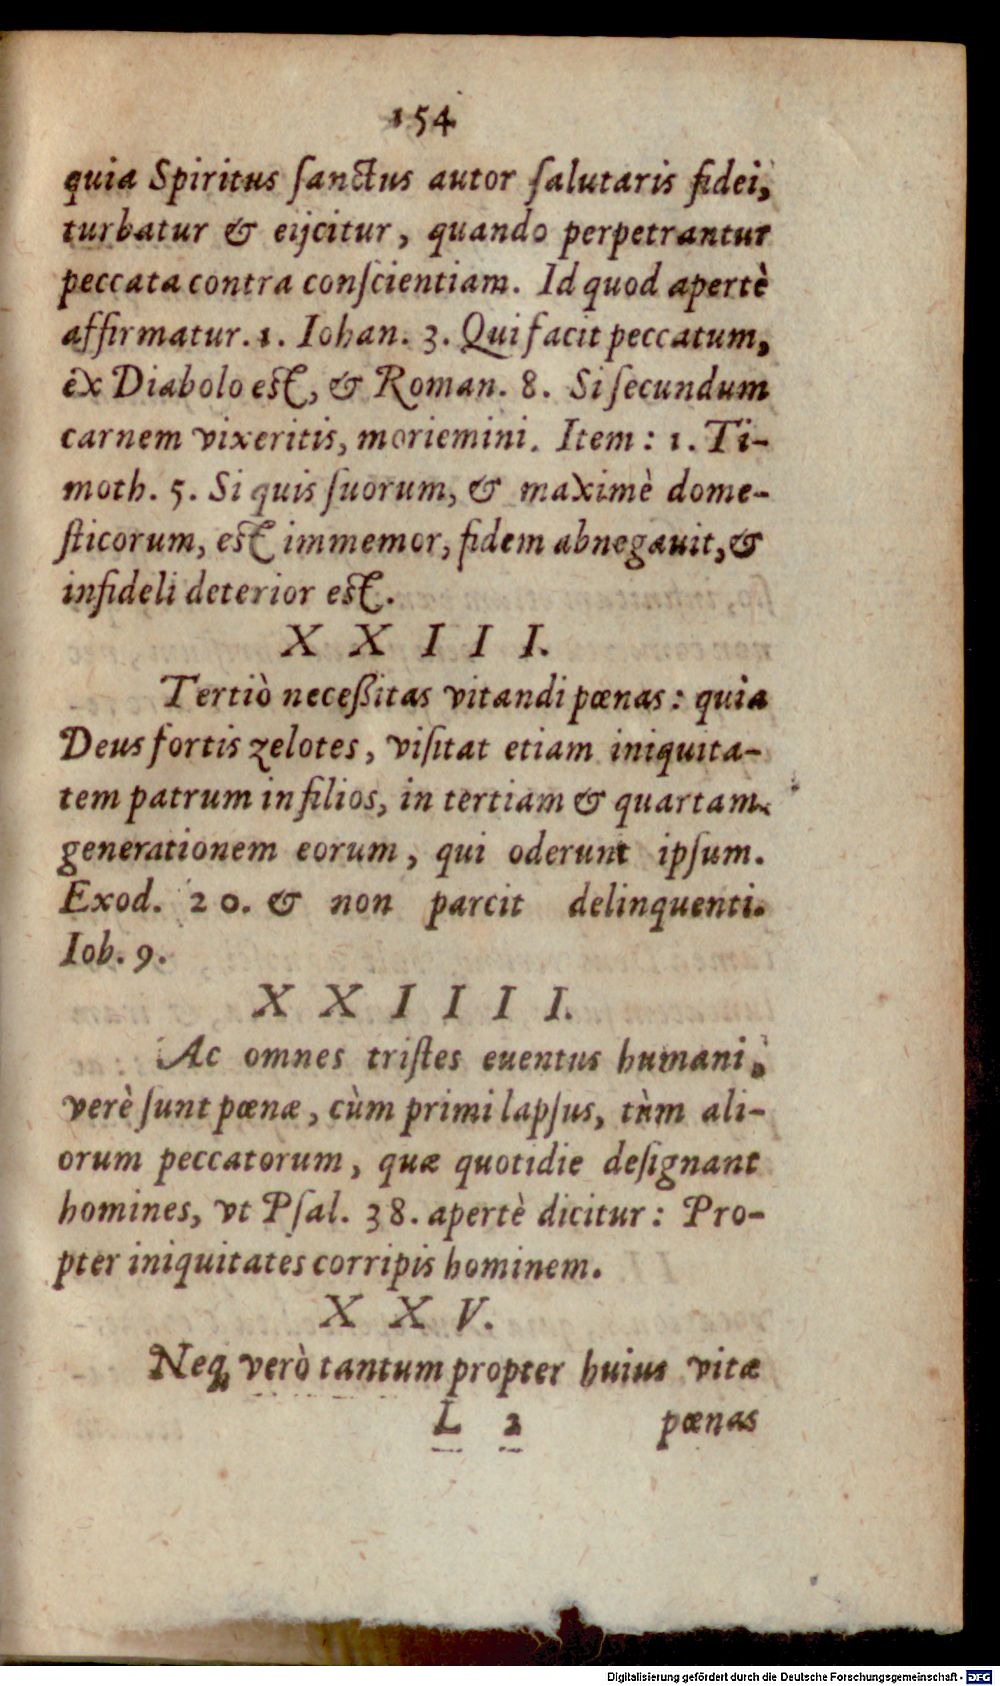 154
quia Spiritus ſanctus autor ſalutaris fidei,
turbatur & eijcitur, quando perpetrantur
peccata contra conſcientiam. Id quod apertè
affirmatur. 1. Iohan. 3. Qui facit peccatum,
ex Diabolo eſt, & Roman. 8. Si ſecundum
carnem vixeritis, moriemini. Item: 1. Ti-
moth. 5. Si quis ſuorum, & maximè dome-
ſticorum, eſt immemor, fidem abnegauit, &
infideli deterior eſt.
X X I I I.
Tertiò neceßitas vitandi pœnas: quia
Deus fortis zelotes, viſitat etiam iniquita-
tem patrum in filios, in tertiam & quartam
generationem eorum, qui oderunt ipſum.
Exod. 20. & non parcit delinquenti.
Iob. 9.
X X I I I I.
Ac omnes triſtes euentus humani,
verè ſunt pœnæ, cùm primi lapſus, tùm ali-
orum peccatorum, quæ quotidie deſignant
homines, vt Pſal. 38. apertè dicitur: Pro-
pter iniquitates corripis hominem.
X X V.
Neq; verò tantum propter huius vitæ
L 2 pœnas
Digitalisierung gefördert durch die Deutsche Forschungsgemeinschaft - DFG